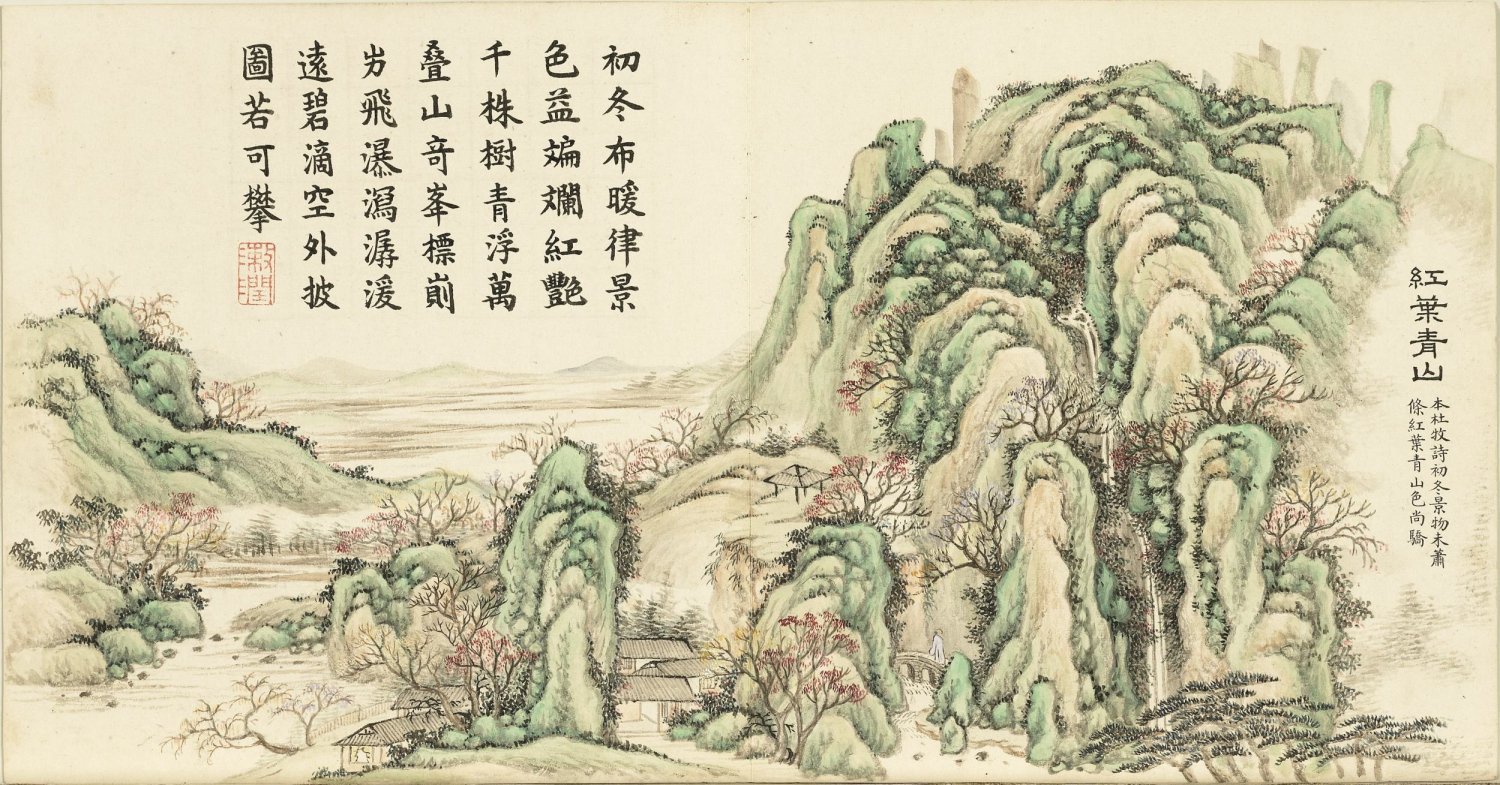 紅葉青山
本杜牧詩初冬景物未蕭
條紅葉青山色尚驕
初冬布暖律景
色益斒斕紅艷
千株樹青浮萬
疊山奇峯標崱
屴飛瀑瀉潺湲
遠碧滴空外披
圖若可攀